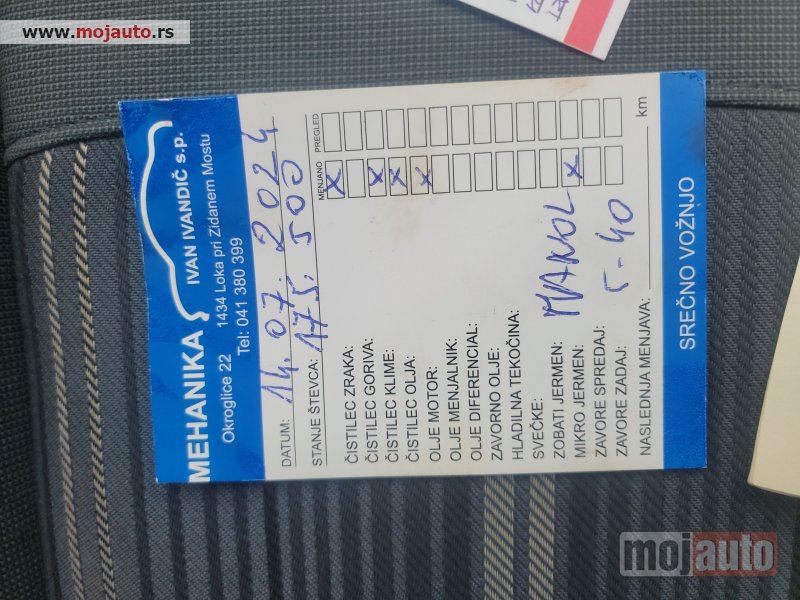 www.mojauto.rs
MEHANIKA
IVAN IVANDIČ s.p.
Okroglice 22 1434 Loka pri Zidanem Mostu
Tel: 041 380 399
DATUM: 14.07.2024
STANJE ŠTEVCA: 175.500
MENJANO PREGLED
ČISTILEC ZRAKA: X
ČISTILEC GORIVA:
ČISTILEC KLIME: X
ČISTILEC OLJA: X
OLJE MOTOR: X
OLJE MENJALNIK:
OLJE DIFERENCIAL:
ZAVORNO OLJE:
HLADILNA TEKOČINA:
SVEČKE:
ZOBATI JERMEN:
MIKRO JERMEN: X
ZAVORE SPREDAJ:
ZAVORE ZADAJ:
5-40
NASLEDNJA MENJAVA: km
SREČNO VOŽNJO
mojauto